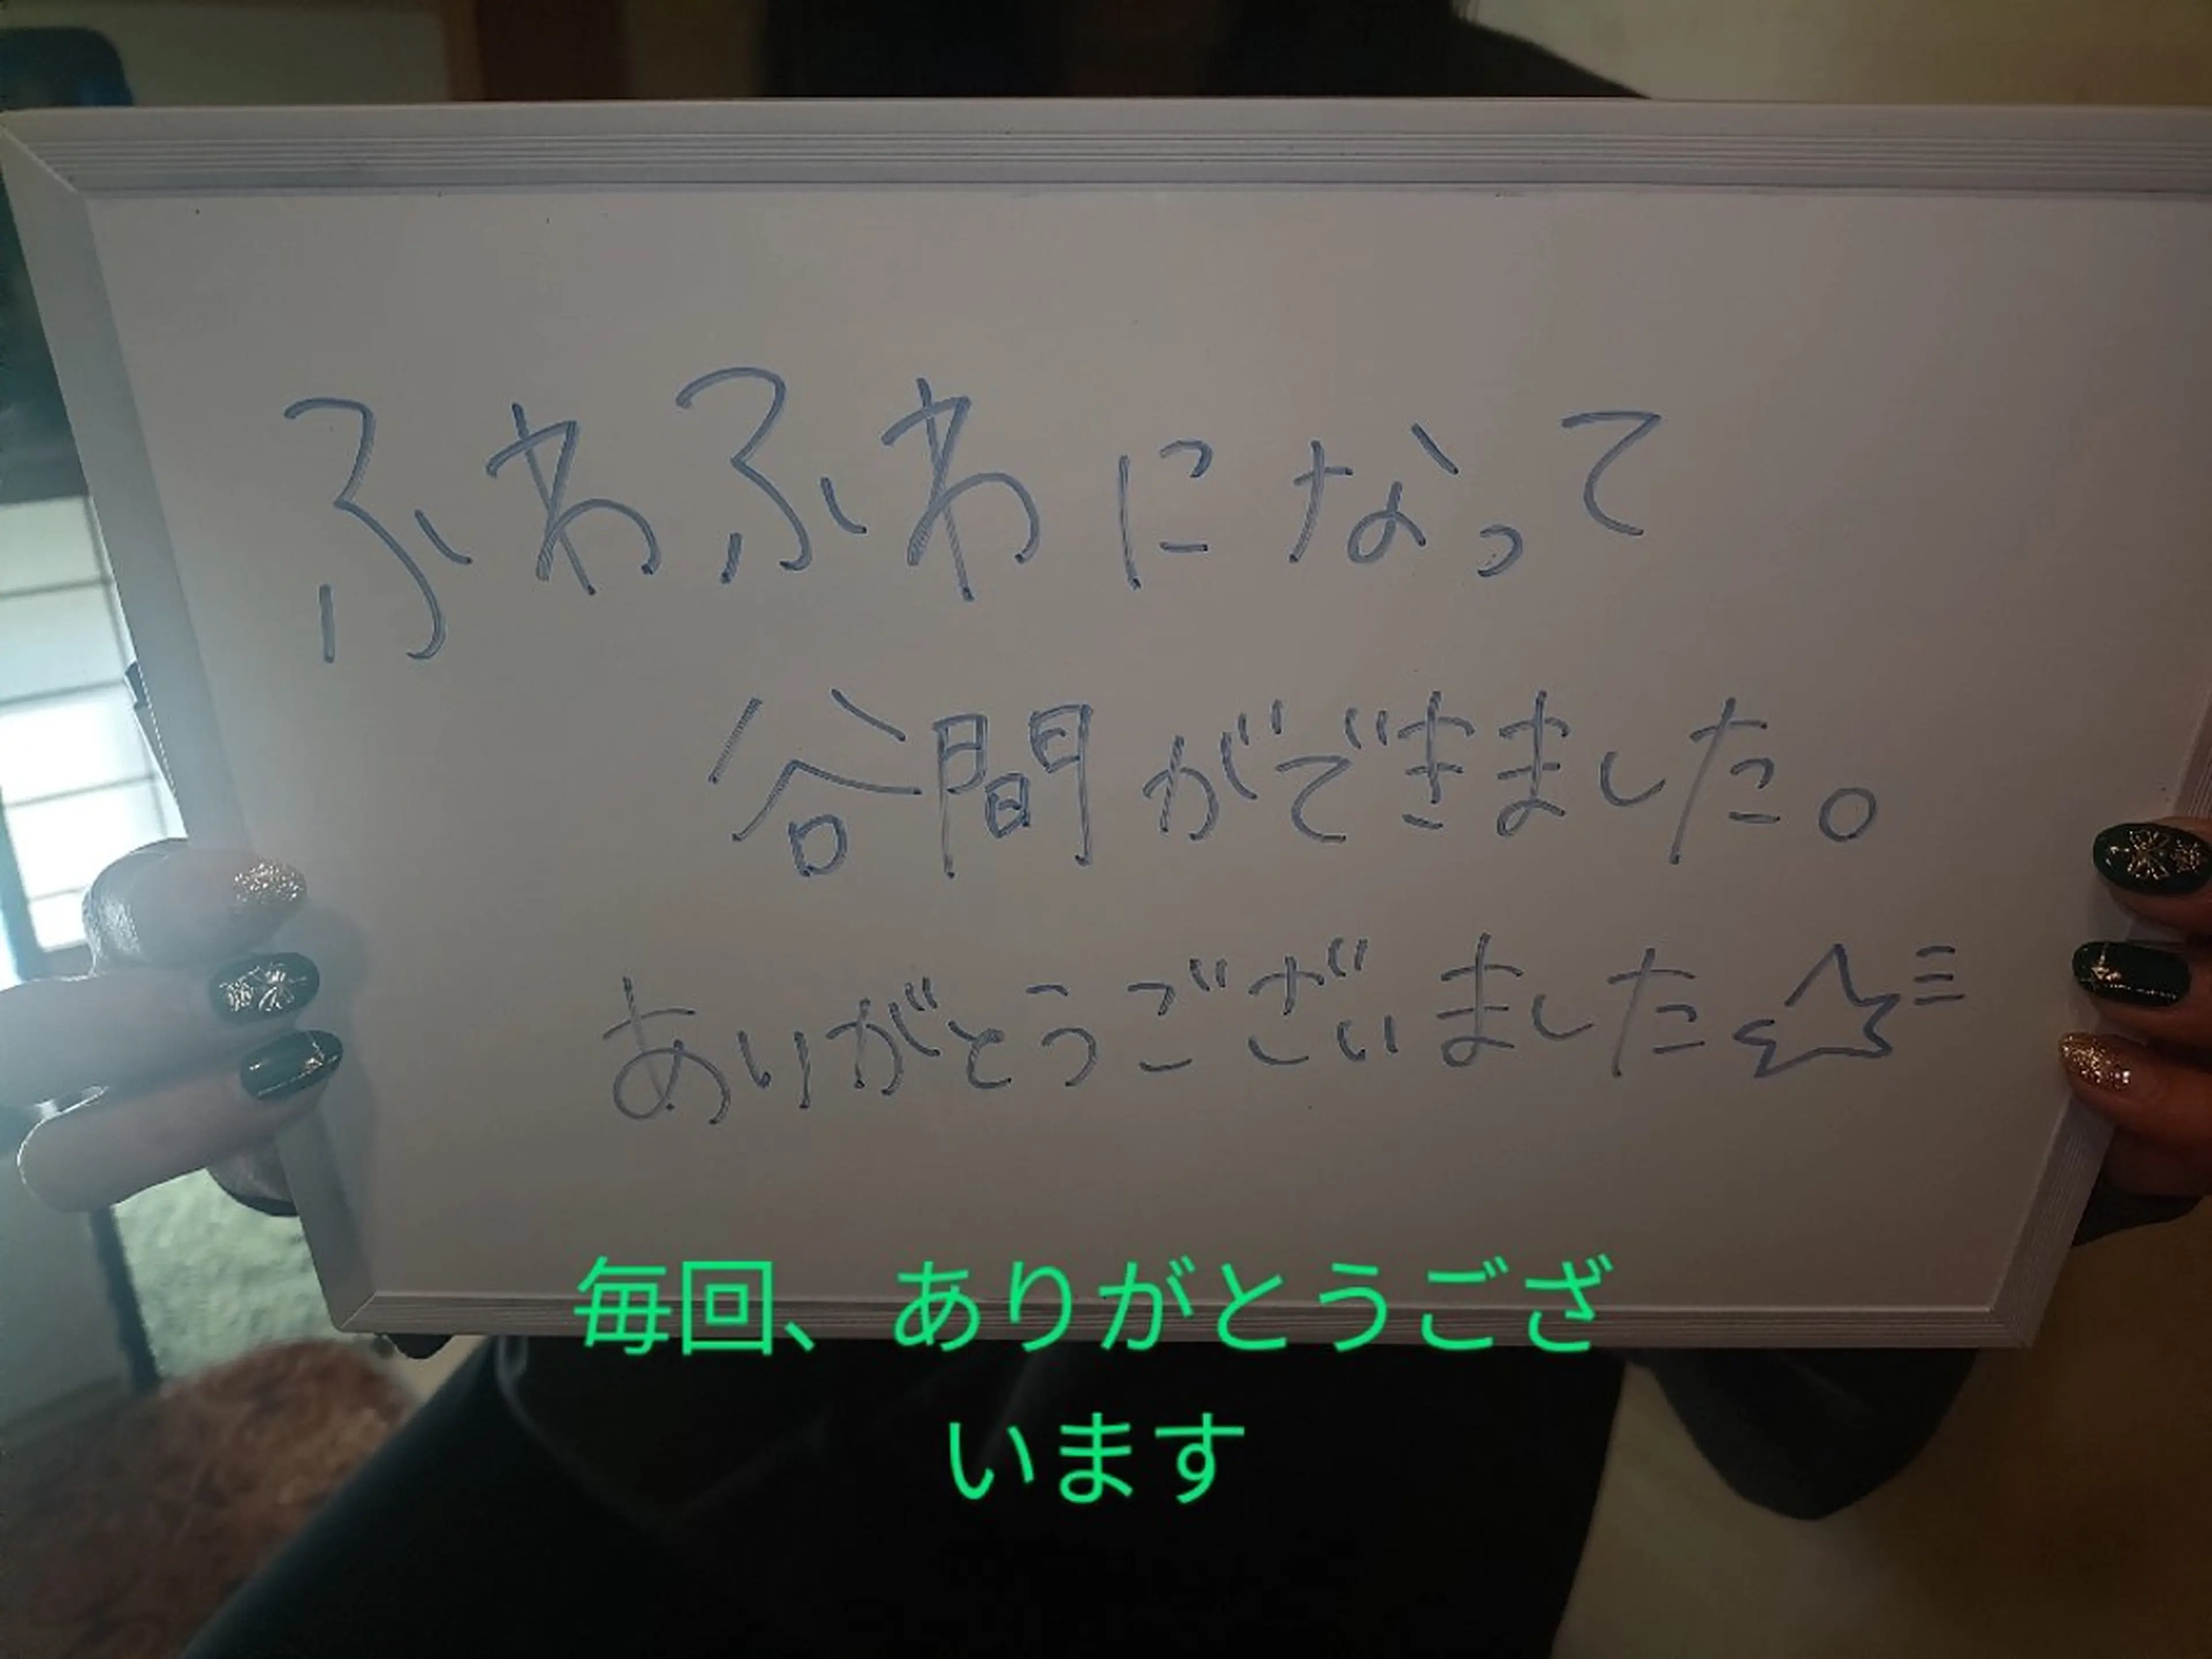 ふわふわになって
谷間ができました。
ありがとうございました☆彡
毎回、ありがとうござ
います